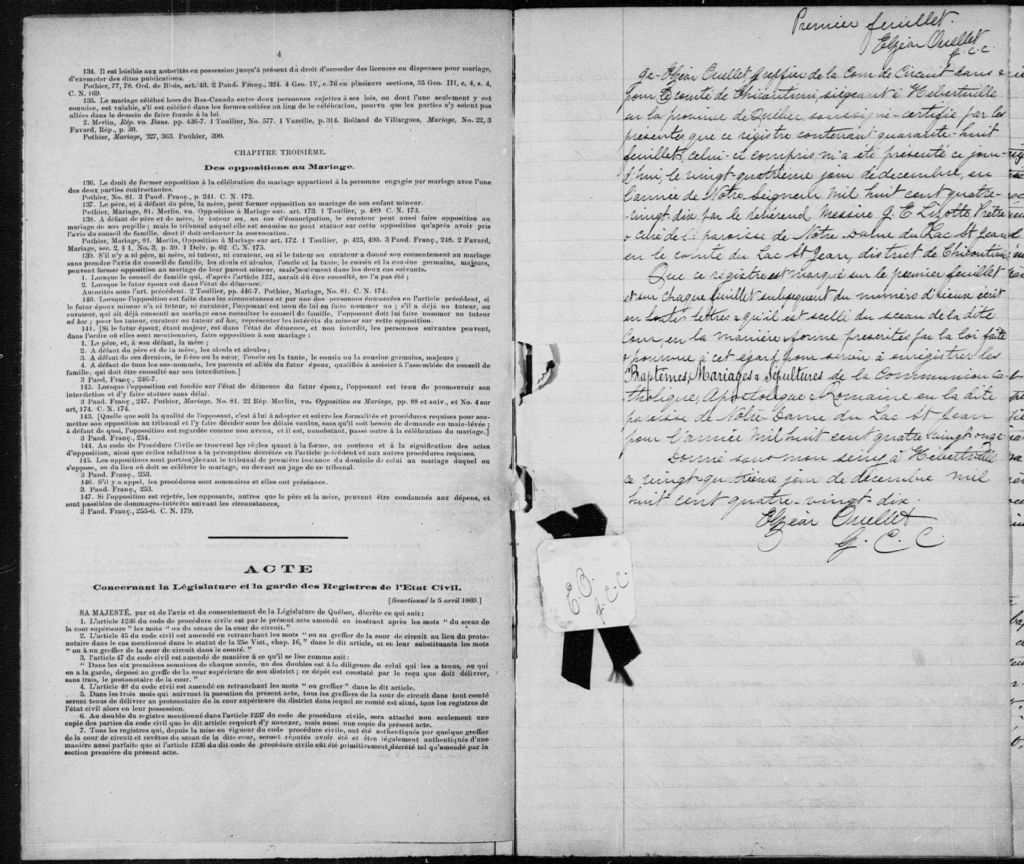 4
134. Il est loisible aux autorités en possession jusqu'à présent du droit d'accorder des licences ou dispenses pour mariage,
d'exempter des dites publications.
Pothier, 77, 78. Ord. de Blois, art. 40. 2 Pand. Franç., 324. 4 Geo. IV, c. 76 en plusieurs sections, 35 Geo. III, c, 4, s. 4,
C. N. 169.
135. Le mariage célébré hors du Bas-Canada entre deux personnes sujettes à ses lois, ou dont l'une seulement y est
soumise, est valable, s'il est célébré dans les formes usitées au lieu de la célébration, pourvu que les parties n'y soient pas
allées dans le dessein de faire fraude à la loi.
2. Merlin, Rép. vo. Bans. pp. 436-7. 1 Toullier, No. 577. 1 Vazeille, p. 314. Rolland de Villargues, Mariage, No. 22, 3
Favard, Rép., p. 39.
Pothier, Mariage, 327, 363. Pouhier, 390.
CHAPITRE TROISIÈME.
Des oppositions au Mariage.
136. Le droit de former opposition à la célébration du mariage appartient à la personne engagée par mariage avec l'une
des deux parties contractantes.
Pothier, No. 81. 3 Pand. Franç., p. 241. C. N. 172.
137. Le père, et à défaut du père, la mère, peut former opposition au mariage de son enfant mineur.
Pothier, Mariage, 81. Merlin, vo. Opposition à Mariage sur art. 173. 1 Toullier, p. 489. C. N. 173.
138. A défaut de père et de mère, le tuteur ou, au cas d'émancipation, le curateur peut aussi faire opposition au
mariage de son pupille; mais le tribunal auquel elle est soumise ne peut statuer sur cette opposition qu'après avoir pris
l'avis du conseil de famille, dont il doit ordonner la convocation.
Pothier, Mariage, 81. Merlin, Opposition à Mariage sur art. 172. 1 Toullier, p. 425, 490. 3 Pand. Franç., 248. 2 Favard,
Mariage, sec. 2. § 1, No. 3, p. 59. 1 Delv. p. 62 C. N. 175.
139. S'il n'y a ni père, ni mère, ni tuteur, ni curateur, ou si le tuteur ou curateur a donné son consentement au mariage
sans prendre l'avis du conseil de famille, les aïeuls et aïeules, l'oncle et la tante, le cousin et la cousine germains, majeurs,
peuvent former opposition au mariage de leur parent mineur, mais seulement dans les deux cas suivants.
1. Lorsque le conseil de famille qui, d'après l'article 122, aurait dû être consulté, ne l'a pas été;
2. Lorsque le futur époux est dans l'état de démence.
Autorités sous l'art. précédent. 2 Toullier, pp. 446-7. Pothier, Mariage, No. 81. C. N. 174.
140. Lorsque l'opposition est faite dans les circonstances et par une des personnes énumérées en l'article précédent, si
le futur époux mineur n'a ni tuteur, ni curateur, l'opposant est tenu de lui en faire nommer un; s'il a déjà un tuteur ou
curateur, qui ait déjà consenti au mariage sans consulter le conseil de famille, l'opposant doit lui faire nommer un tuteur
ad hoc; pour les tuteur, curateur ou tuteur ad hoc, représenter les intérêts du mineur sur cette opposition.
141. [Si le futur époux, étant majeur, est dans l'état de démence, et non interdit, les personnes suivantes peuvent,
dans l'ordre où elles sont mentionnées, faire opposition à son mariage:
1. Le père, et, à son défaut, la mère;
2. A défaut du père et de la mère, les aïeuls et aïeules;
3. A défaut de ces derniers, le frère ou la sœur, l'oncle ou la tante, le cousin ou la cousine germains, majeurs;
4. A défaut de tous les sus-nommés, les parents et alliés du futur époux, qualifiés à assister à l'assemblée du conseil de
famille, qui doit être consulté sur son interdiction.]
3 Pand. Franç., 246-7.
142. Lorsque l'opposition est fondée sur l'état de démence du futur époux, l'opposant est tenu de promouvoir son
interdiction et d'y faire statuer sans délai.
3 Pand. Franç., 247. Pothier, Mariage, No. 81. 22 Rép. Merlin, vo. Opposition au Mariage, pp. 88 et suiv., et No. 4 sur
art, 174. C. N. 174.
143. [Quelque que soit la qualité de l'opposant, c'est à lui à adopter et suivre les formalités et procédures requises pour soumettre son opposition au tribunal et l'y faire décider sous les délais voulus, sans qu'il soit besoin de demande en main-lévée;
à défaut de quoi, l'opposition est regardée comme non avenu, et il est, nonobstant, passé outre à la célébration du mariage.]
3 Pand. Franç., 254.
144. Au code de Procédure Civile se trouvent les règles quant à la forme, au contenu et à la signification des actes
d'opposition, ainsi que celles relatives à la péremption décrétée en l'article précédent et aux autres procédures requises.
145. Les oppositions sont portées devant le tribunal de première instance du domicile de celui au mariage duquel on
s'oppose, ou du lieu où doit se célébrer le mariage, ou devant un juge de ce tribunal.
3 Pand. Franç., 253.
146. S'il y a appel, les procédures sont sommaires et elles ont préséance.
3. Pand. Franç., 253.
147. Si l'opposition est rejetée, les opposants, autres que le père et la mère, peuvent être condamnés aux dépens, et
sont passibles de dommages-intérêts suivant les circonstances,
3 Pand. Franç., 255-6. C. N. 179.
ACTE
Concernant la Législature et la garde des Registres de l'Etat Civil.
[Sanctionné le 5 avril 1869.]
SA MAJESTÉ, par et de l'avis et du consentement de la Législature de Québec, décrète ce qui suit:
1. L'article 1236 du code de procédure civile est par le présent acte amendé en insérant après les mots "du sceau de
la cour supérieure" les mots "ou du sceau de la cour de circuit."
2. L'article 45 du code civil est amendé en retranchant les mots "ou au greffier de la cour de circuit au lieu du protonotaire dans le cas mentionné dans le statut de la 25e Vict., chap. 16," dans le dit article, et en leur substituant les mots
"ou à un greffier de la cour de circuit dans le comté."
3. l'article 47 du code civil est amendé de manière à ce qu'il se lise comme suit:
"Dans les six premières semaines de chaque année, un des doubles est à la diligence de celui qui les a tenus, ou qui
en a la garde, déposé au greffe de la cour supérieure de son district; ce dépôt est constaté par le reçu que doit délivrer,
sans frais, le protonotaire de la cour."
4. L'article 48 du code civil est amendé en retranchant les mots "ou greffier" dans le dit article.
5. Dans les trois mois qui suivront la passation du présent acte, tous les greffiers de la cour de circuit dans tout comté
seront tenus de délivrer au protonotaire de la cour supérieure du district dans lequel ce comté est situé, tous les registres de
l'état civil alors en leur possession.
6. Au double du registre mentionné dans l'article 1237 du code de procédure civile, sera attaché non seulement une
copie des parties du code civil que le dit article requiert d'y annexer, mais aussi une copie du présent acte.
7. Tous les registres qui, depuis la mise en vigueur du code procédure civile, ont été authentiqués par quelque greffier
de la cour de circuit et revêtus du sceau de la dite cour, seront réputés avoir été et être légalement authentiqués d'une
manière aussi parfaite que si l'article 1236 du dit code de procédure civile eût été primitivement décrété tel qu'amendé par la
section première du présent acte.
Premier feuillet.
Elzéar Ouellet
G. C. C.
Je Elzéar Ouellet Greffier de la Cour de Circuit dans &
pour le comté de Chicoutimi, siégeant à Hébertville
en la province de Québec soussigné certifie par les
présentes que ce régistre contenant quarante-huit
feuillets, celui-ci compris, m'a été présenté ce jourd'hui, le vingt-quatrième jour de décembre, en
l'année de Notre Seigneur mil huit cent quatrevingt-dix par le révérend Messire J. E. Lizotte Prêtre
& curé de la paroisse de Notre Dame du Lac St Jean
en le comté du Lac St Jean, district de Chicoutimi
Que ce régistre est marqué sur le premier feuillet
et sur chaque feuillet subséquent du numéro d'iceux écrit
en toutes lettres & qu'il est scellé du sceau de la dite
Cour en la manière & forme prescrites par la loi faite
& pourvue à cet égard pour servir à enregistrer les
Baptêmes, Mariages & Sépultures de la Communion Catholique, Apostolique & Romaine en la dite
paroisse de Notre Dame du Lac St Jean
pour l'année mil huit cent quatre vingt onze
Donné sous mon seing à Hébertville
ce vingt-quatrième jour de décembre mil
huit cent quatre-vingt-dix.
Elzéar Ouellet
G. C. C.
E.O.
G.C.C.